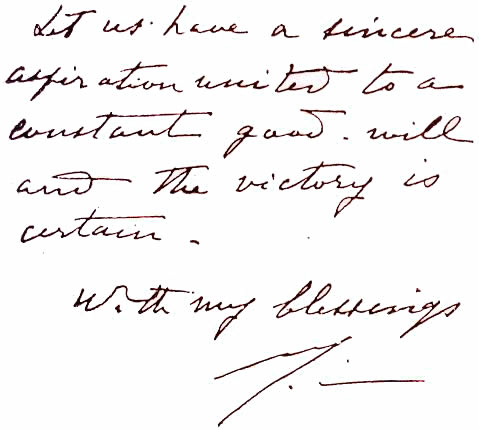 Let us have a sincere
aspiration united to a
constant good-will
and the victory is
certain.
With my blessings